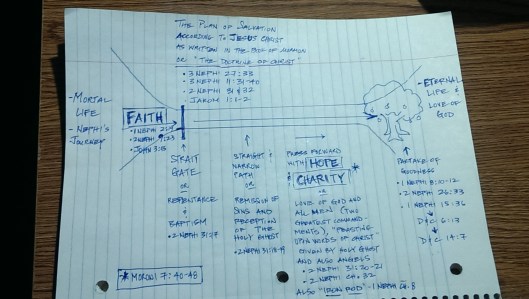 THE PLAN OF SALVATION
ACCORDING TO JESUS CHRIST
AS WRITTEN IN THE BOOK OF MORMON
OR "THE DOCTRINE OF CHRIST"
• 3 NEPHI 27:33
• 3 NEPHI 11:31-40
• 2 NEPHI 31 & 32
• JAROM 1:1-2
- MORTAL
LIFE
- NEPHI'S
JOURNEY
FAITH
• 1 NEPHI
• 2 NEPHI
• JOHN 3:15
STRAIT
GATE
OR
REPENTANCE
&
BAPTISM
• 2 NEPHI 31:17
STRAIGHT &
NARROW
PATH
OR
REMISSION OF
SINS AND
RECEPTION
OF THE
HOLY GHOST
• 2 NEPHI 31:18-19
PRESS FORWARD
WITH HOPE
& CHARITY
OR
LOVE OF GOD AND
ALL MEN (TWO
GREATEST COMMAND-
MENTS), "FEASTING
UPON WORDS OF CHRIST"
GIVEN BY HOLY GHOST
AND ALSO ANGELS
• 2 NEPHI 31:20-21
• 2 NEPHI CH. 32
ALSO "IRON ROD" - 1 NEPHI CH. 8
- ETERNAL
LIFE &
LOVE OF
GOD
PARTAKE OF
GOODNESS
• 1 NEPHI 8:10-12
• 2 NEPHI 26:33
• 1 NEPHI 15:36
D&C 6:13
D&C 14:7
* MORONI 7:40-48